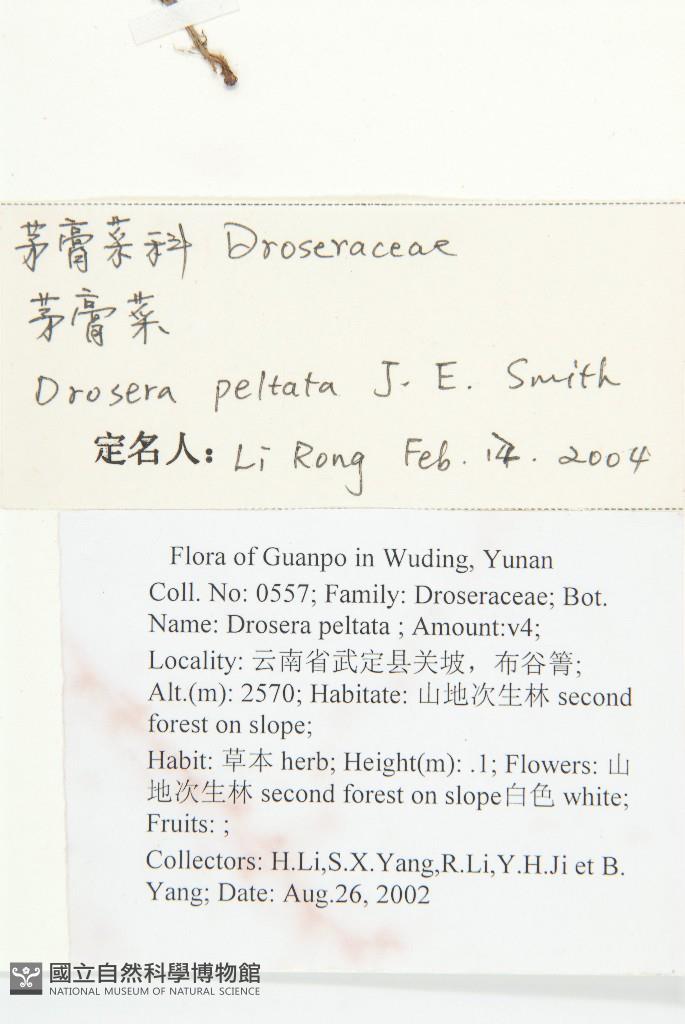 茅膏菜科 Droseraceae
茅膏菜
Drosera peltata J. E. Smith
定名人: Li Rong Feb. 14. 2004
Flora of Guanpo in Wuding, Yunan
Coll. No: 0557; Family: Droseraceae; Bot.
Name: Drosera peltata ; Amount:v4;
Locality: 云南省武定县关坡，布谷箐;
Alt.(m): 2570; Habitate: 山地次生林 second
forest on slope;
Habit: 草本 herb; Height(m): .1; Flowers: 山
地次生林 second forest on slope白色 white;
Fruits: ;
Collectors: H.Li,S.X.Yang,R.Li,Y.H.Ji et B.
Yang; Date: Aug.26, 2002
國立自然科學博物館
NATIONAL MUSEUM OF NATURAL SCIENCE